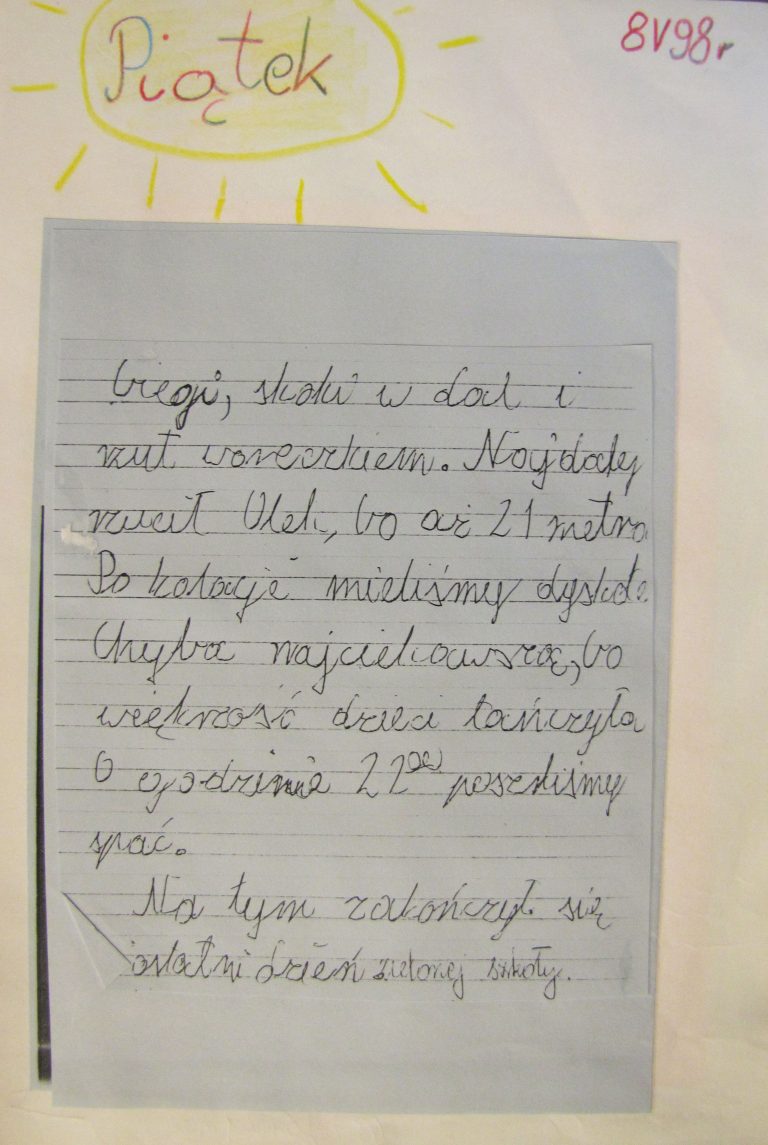 Piątek
8 V 98 r
biegi, skoki w dal i
rzut woreczkiem. Najdalej
rzucił Olek, bo aż 21 metró
Po kolacji mieliśmy dyskote
Chyba najciekawszą, bo
większość dzieci tańczyła
O godzinie 22⁰⁰ poszliśmy
spać.
Na tym zakończył się
ostatni dzień zielonej szkoły.